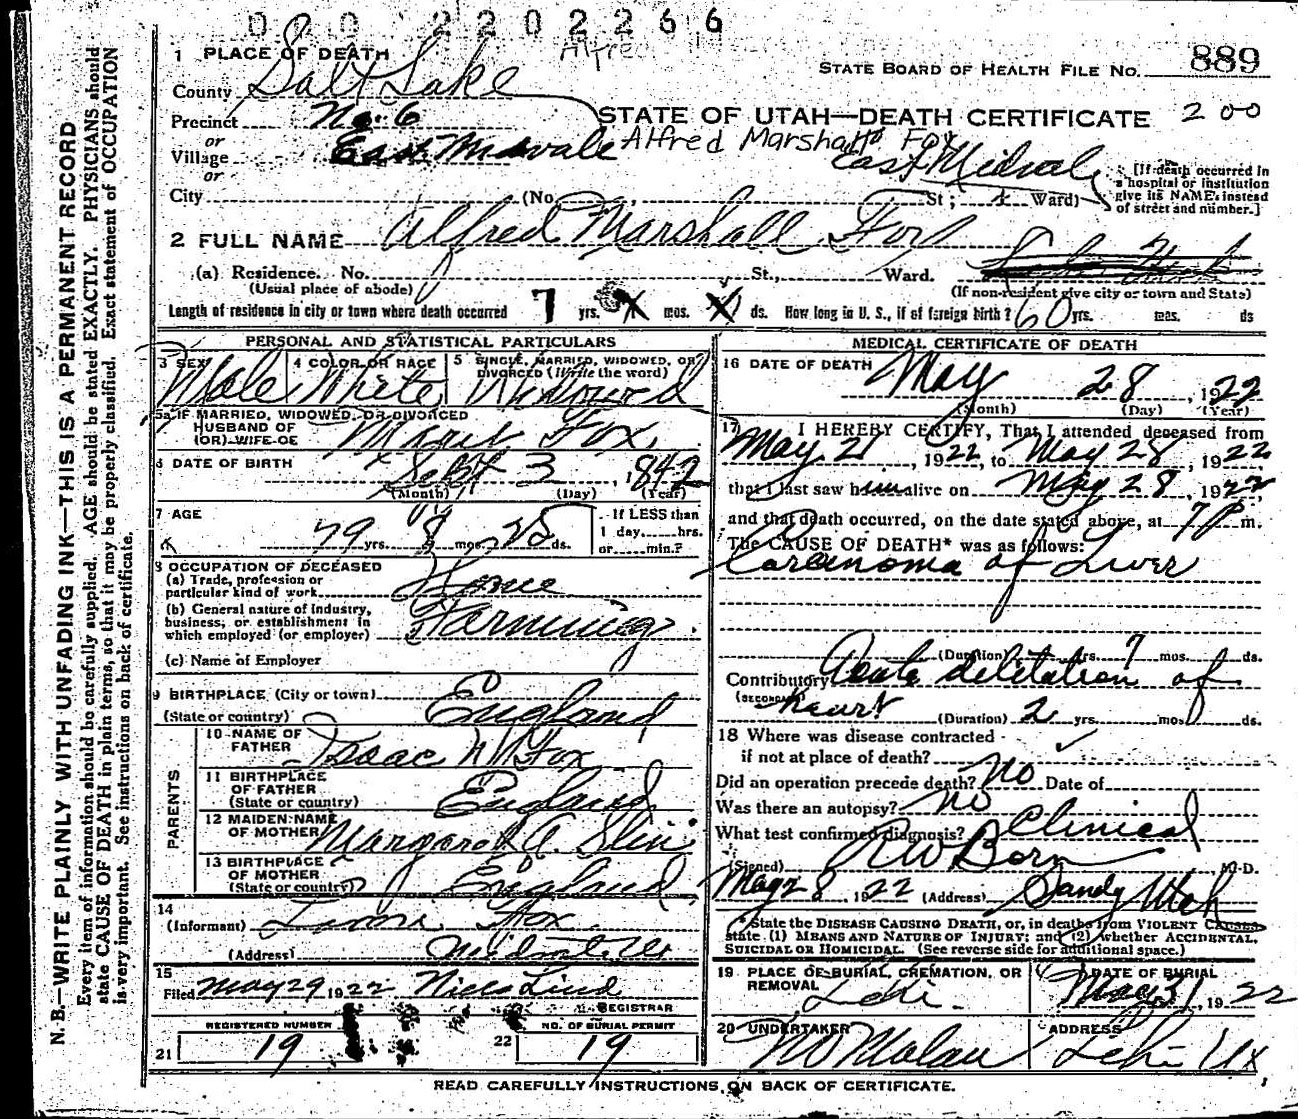 0 0 0 2 2 0 2 2 6 6
Alfred
1 PLACE OF DEATH
STATE BOARD OF HEALTH FILE No. 889
County Salt Lake
STATE OF UTAH—DEATH CERTIFICATE 2 00
Precinct No. 6
or
Village East Midvale
Alfred Marshall Fox
East Midvale
or
City (No. St; Ward)
[If death occurred in a hospital or institution give its NAME instead of street and number.]
2 FULL NAME Alfred Marshall Fox
(a) Residence. No. St., Ward.
(Usual place of abode)
(If non-resident give city or town and State)
Length of residence in city or town where death occurred 7 yrs. mos. ds. How long in U. S., if of foreign birth? 60 yrs. mos. ds
PERSONAL AND STATISTICAL PARTICULARS
3 SEX Male
4 COLOR OR RACE White
5 SINGLE, MARRIED, WIDOWED, OR DIVORCED (Write the word) Widowed
5a IF MARRIED, WIDOWED, OR DIVORCED
HUSBAND OF
(OR) WIFE OF Fox
6 DATE OF BIRTH Sept 3, 1842
(Month) (Day) (Year)
7 AGE 79 yrs. 8 mos. 25 ds.
If LESS than
1 day......hrs.
or......min.?
8 OCCUPATION OF DECEASED
(a) Trade, profession or
particular kind of work Home
(b) General nature of industry,
business, or establishment in
which employed (or employer) Farming
(c) Name of Employer
9 BIRTHPLACE (City or town)
(State or country) England
PARENTS
10 NAME OF
FATHER Isaac W Fox
11 BIRTHPLACE
OF FATHER
(State or country) England
12 MAIDEN NAME
OF MOTHER Margaret A.
13 BIRTHPLACE
OF MOTHER
(State or country) England
14
(Informant) Fox
(Address)
15
Filed May 29 1922 Niels Lind
REGISTRAR
REGISTERED NUMBER
21 19
NO. OF BURIAL PERMIT
22 19
MEDICAL CERTIFICATE OF DEATH
16 DATE OF DEATH May 28, 1922
(Month) (Day) (Year)
17 I HEREBY CERTIFY, That I attended deceased from
May 21, 1922, to May 28, 1922
that I last saw him alive on May 28, 1922
and that death occurred, on the date stated above, at 7 P m.
The CAUSE OF DEATH* was as follows:
Carcinoma of Liver
(Duration) yrs. 7 mos. ds.
Contributory Acute delitation of
(SECONDARY) heart (Duration) 2 yrs. mos. ds.
18 Where was disease contracted
if not at place of death?
Did an operation precede death? No Date of
Was there an autopsy? no
What test confirmed diagnosis? Clinical
(Signed) R W Born M.D.
May 28, 1922 (Address) Sandy Utah
*State the DISEASE CAUSING DEATH, or, in deaths from VIOLENT CAUSES
state (1) MEANS AND NATURE OF INJURY; and (2) whether ACCIDENTAL,
SUICIDAL OR HOMICIDAL. (See reverse side for additional space.)
19 PLACE OF BURIAL, CREMATION, OR
REMOVAL Lehi
DATE OF BURIAL
May 31, 1922
20 UNDERTAKER
ADDRESS
Lehi Ut
READ CAREFULLY INSTRUCTIONS ON BACK OF CERTIFICATE.
N. B.—WRITE PLAINLY WITH UNFADING INK—THIS IS A PERMANENT RECORD
Every item of information should be carefully supplied. AGE should be stated EXACTLY. PHYSICIANS should
state CAUSE OF DEATH in plain terms, so that it may be properly classified. Exact statement of OCCUPATION
is very important. See instructions on back of certificate.